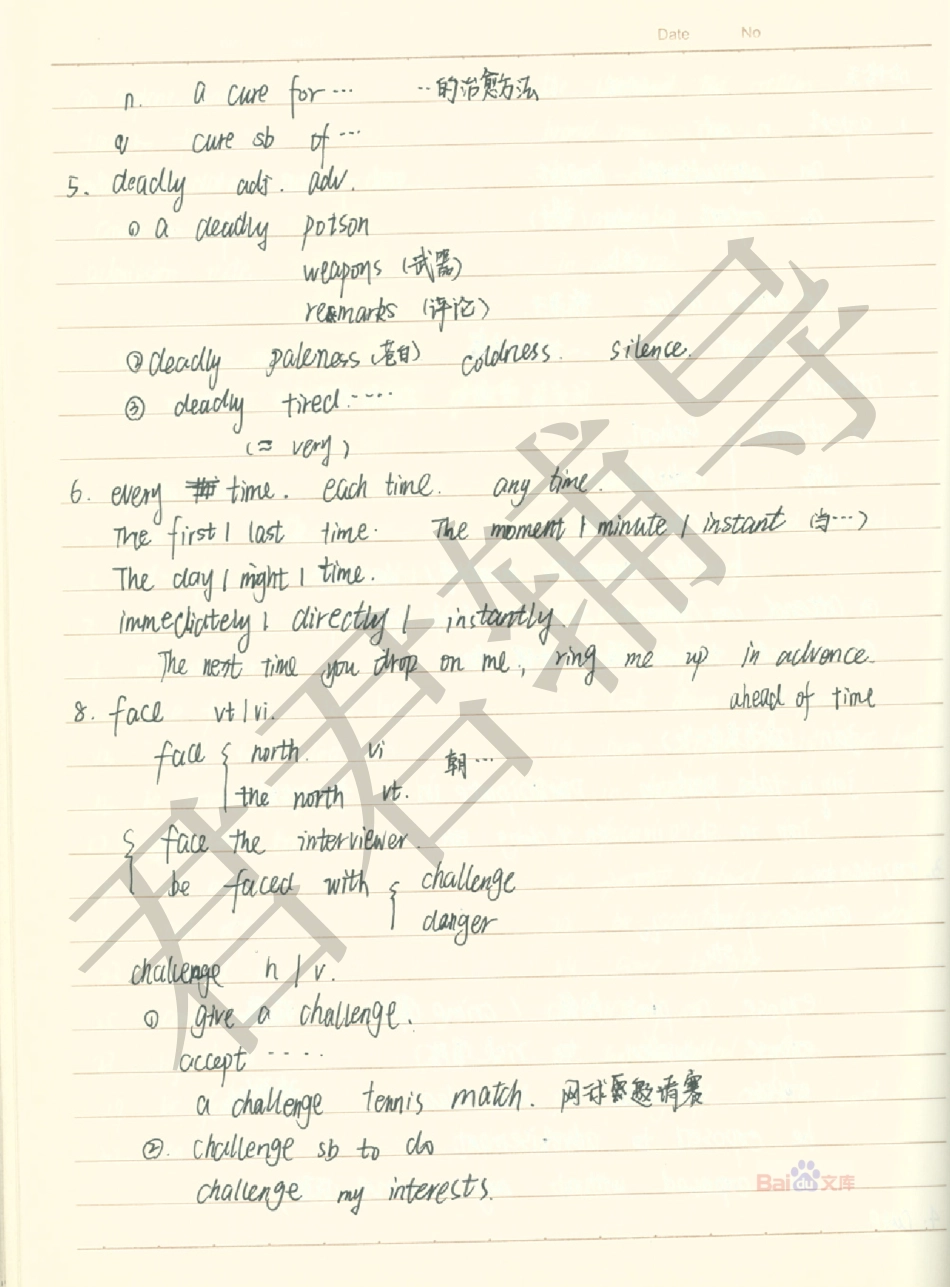 Date No
n. a cure for… …的治愈方法
v cure sb of …
5. deadly adj. adv.
① a deadly potson
weapons (武器)
remarks (评论)
② deadly paleness (苍白) coldness. silence.
③ deadly tired.…
(= very)
6. every time. each time. any time.
The first | last time. The moment | minute | instant (当…)
The day | night | time.
immediately | directly | instantly.
The next time you drop on me, ring me up in advance.
ahead of time
8. face vt|vi.
face { north. vi 朝…
the north vt.
{ face the interviewer.
be faced with { challenge
danger
challenge n / v.
① give a challenge.
accept ……
a challenge tennis match. 网球邀请赛
②. challenge sb to do
challenge my interests.
Baidu文库
君君辅导